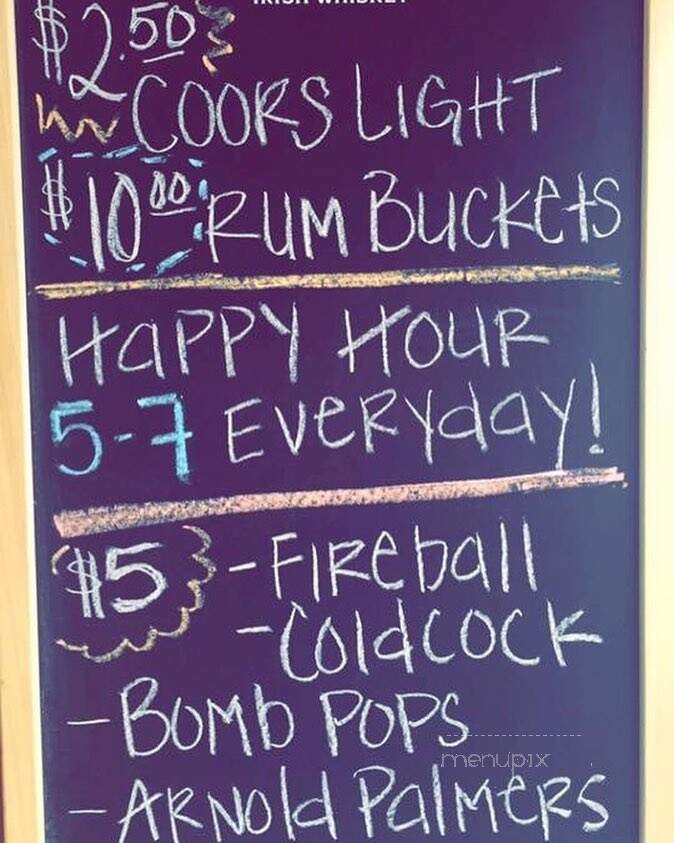 IRISH WHISKEY
$2.50
COORS LIGHT
$10.00 RUM BUCKETS
HAPPY HOUR
5-7 EVERYDAY!
$5 - FIREBALL
- COLDCOCK
- BOMB POPS
menupix
- ARNOLD PALMERS